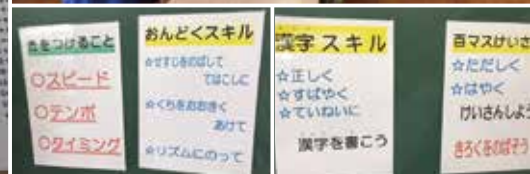 気をつけること
○スピード
○テンポ
○タイミング
おんどくスキル
☆せすじをのばして
てはこしに
☆くちをおおきく
あけて
☆リズムにのって
漢字スキル
☆正しく
☆すばやく
☆ていねいに
漢字を書こう
百マスけいさ
☆ただしく
☆はやく
けいさんしよう
きろくをのばそう